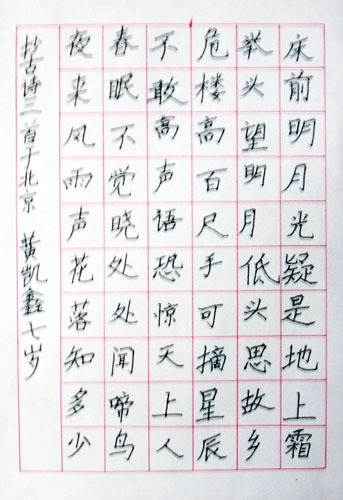 床前明月光疑是地上霜
举头望明月低头思故乡
危楼高百尺手可摘星辰
不敢高声语恐惊天上人
春眠不觉晓处处闻啼鸟
夜来风雨声花落知多少
抄古诗三首于北京 黄凯鑫七岁